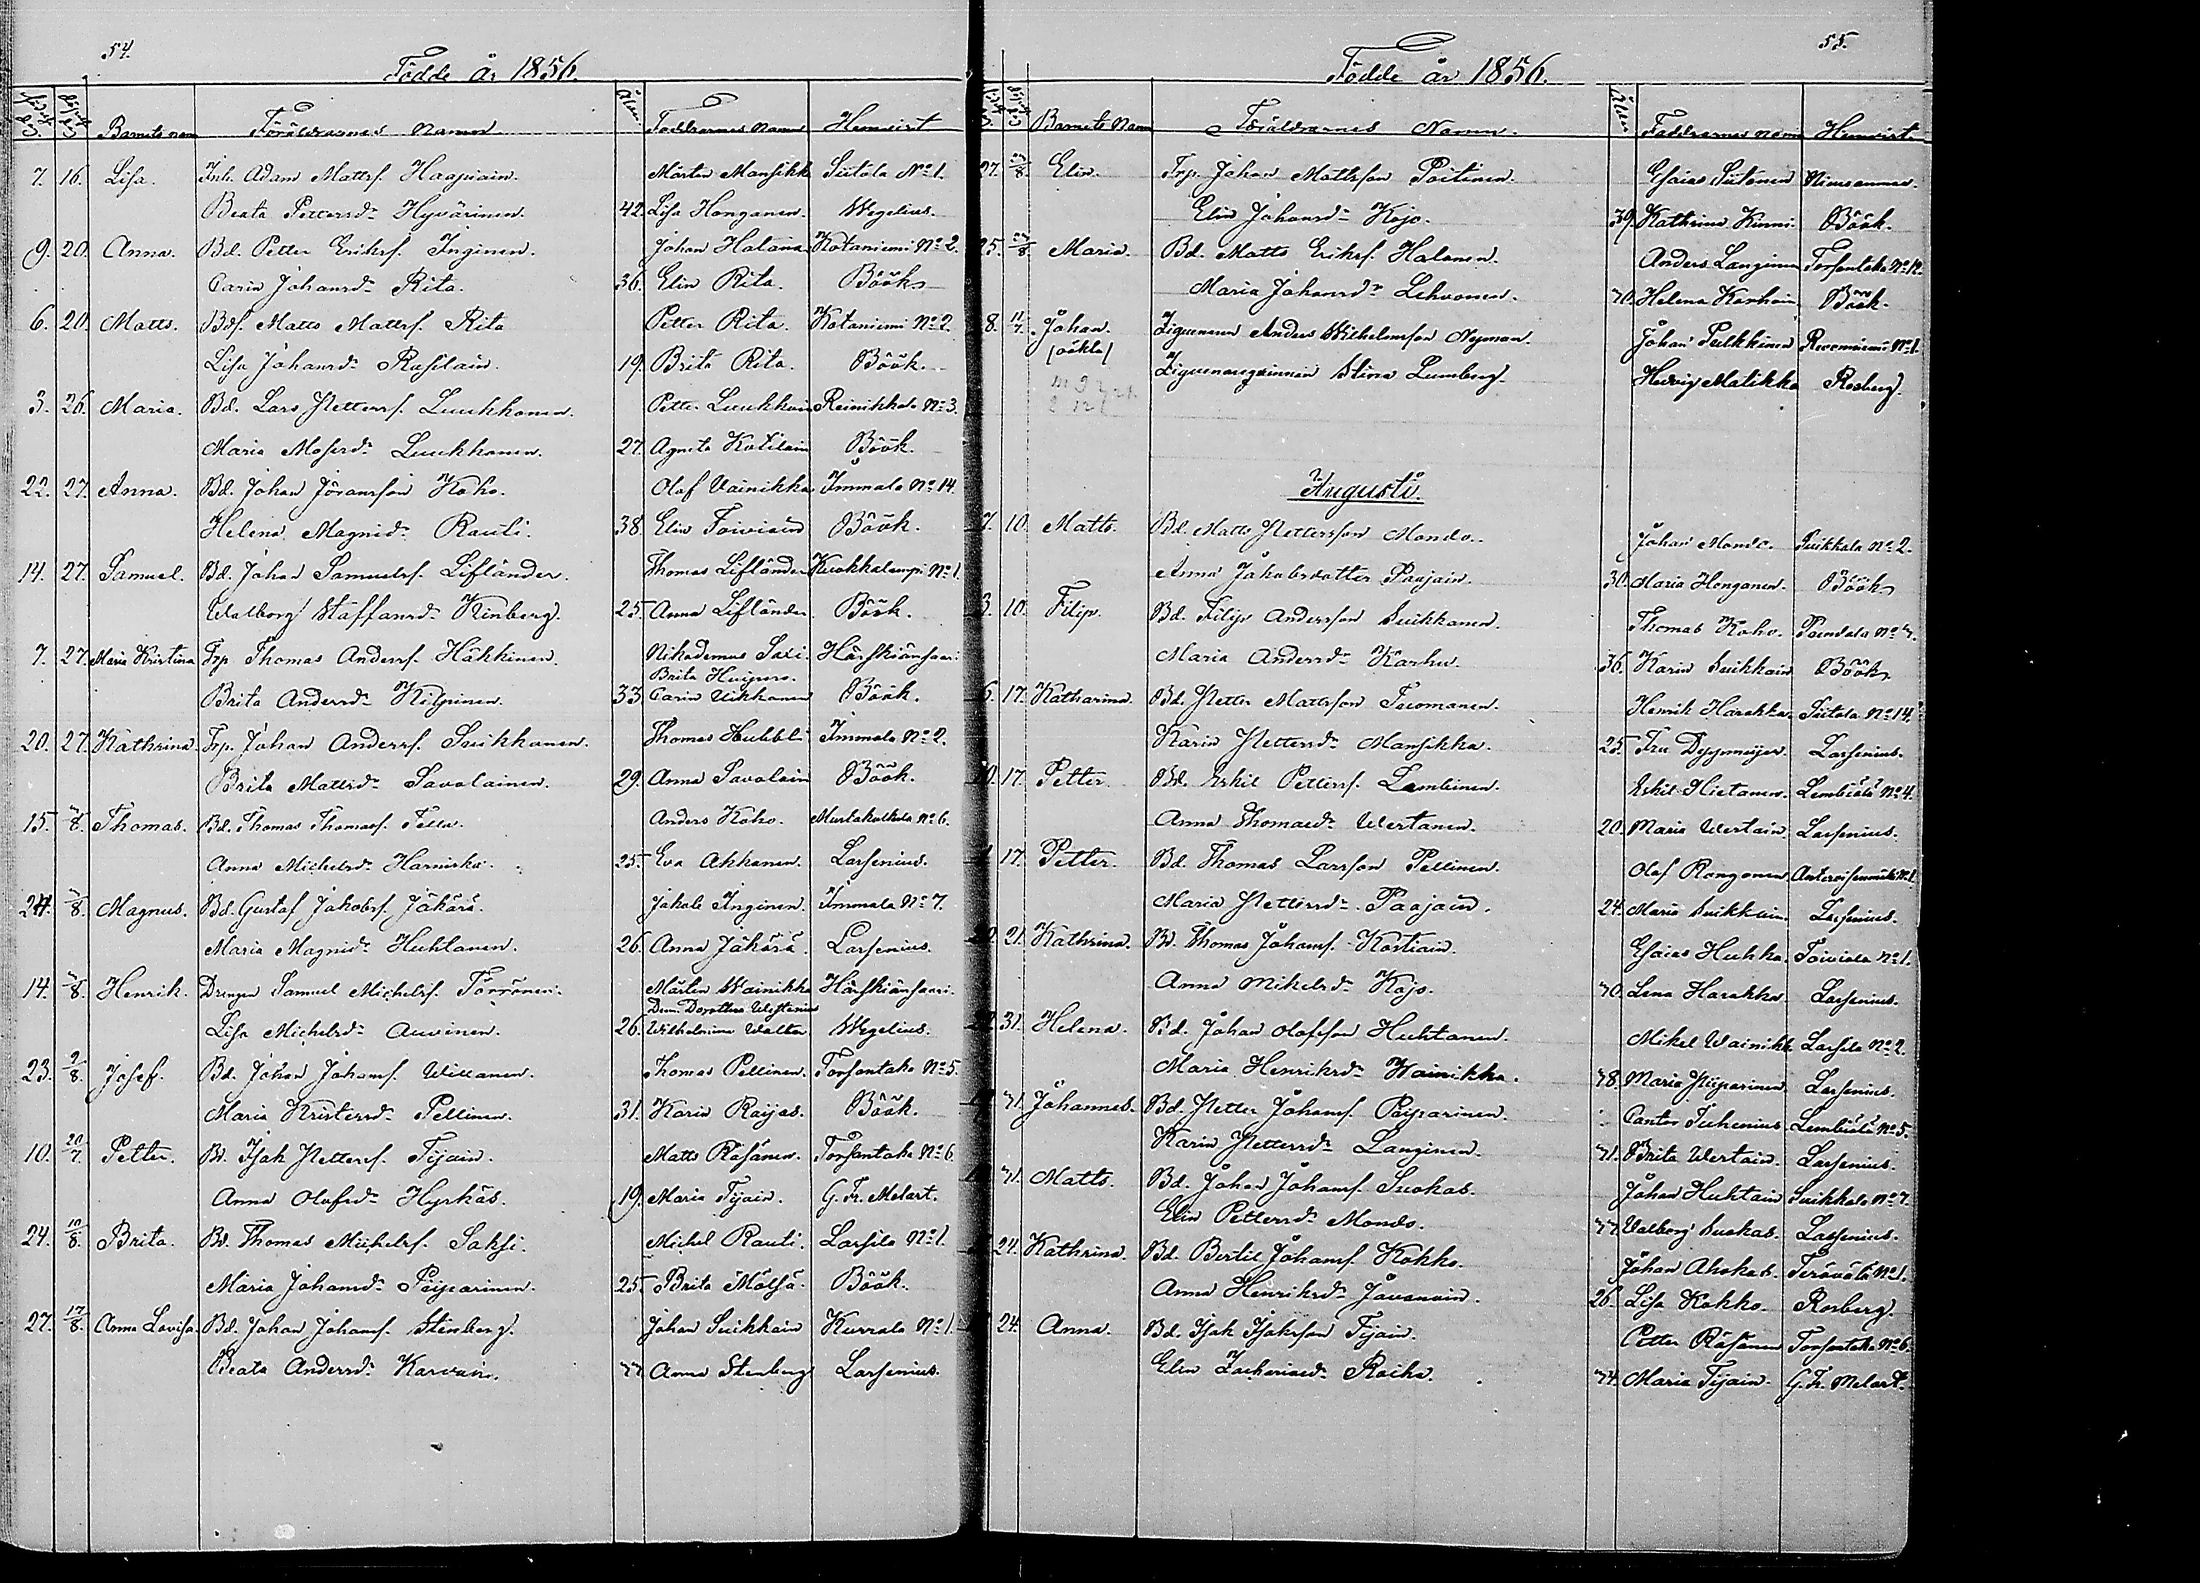 54.
Födde År 1856.
födelse dag döpelse dag Barnets namn Föräldrarnes namn Ålder Faddrarnes Namn Hemvist
7. 16. Lisa. Inh. Adam Mattsf. Haapiain. Mårten Mansikk Siitola No 1.
Beata Pettersdr Hyvärinen. 42 Lisa Honganen. Wegelius.
9. 20. Anna. Bd. Petter Eriksf. Inginen. Johan Halana Kotaniemi No 2.
Carin Johansdr Rita. 36. Elin Rita. Böök
6. 20. Matts. Bdf. Matts Mattsf. Rita Petter Rita. Kotaniemi No 2.
Lisa Johansdr Rasilain. 19. Brita Rita. Böök.
3. 26. Maria. Bd. Lars Pettersf. Luukkonen. Petter Luukkain Reinikkala No 3.
Maria Mosesdr Luukkonen. 27. Agneta Kotilain Böök.
22. 27. Anna. Bd. Johan Göransson Koho. Olof Vainikka Immala No 14.
Helena Magnidr Rauti. 38. Elin Toiviain Böök.
14. 27. Samuel. Bd. Johan Samuelsf. Lifländer. Thomas Lifländer Kuokkalampi No 1.
Walborg Staffansdr Kinberg. 25. Anna Lifländer Böök.
7. 27. Maria Kristina Trp Thomas Andersf. Häkkinen. Nikodemus Saxi. Härskiänsaari
Brita Huipero.
Brita Andersdr Kilpinen. 33 Carin Ukkonen Böök.
20. 27. Kathrina. Trp. Johan Andersf. Suikkanen. Thomas Hubbli Immala No 2.
Brita Mattsdr Savolainen. 29. Anna Savolain Böök.
15. 3/8. Thomas. Bd. Thomas Thomasf. Tella. Anders Koho. Mustakulkula No 6.
Anna Michelsdr Harniska. 25. Eva Ahkanen. Larsenius.
24. 3/8. Magnus. Bd. Gustaf Jakobsf. Jäkärä. Jakob Inginen. Immala No 7.
Maria Magnidr Huhtanen. 26. Anna Jäkärä. Larsenius.
14. 3/8. Henrik. Drengen Samuel Michelsf. Törrönen. Mårten Wainikka Härskiänsaari.
Dem. Dorothea Westenius
Lisa Michelsdr Auvinen. 26. Wilhelmina Walter Wegelius.
23. 9/8. Josef. Bd. Johan Johansf. Willanen. Thomas Pellinen. Torsantaka No 5.
Maria Kristersdr Pellinen. 31. Karin Raijas. Böök.
10. 20/7. Petter. Bd. Isak Pettersf. Tijain. Matts Räsänen. Torsantaka No 6.
Anna Olofsdr Hyrkäs. 19. Maria Tijain. G. Fr. Melart.
24. 10/8. Brita. Bd. Thomas Michelsf. Saksi. Michel Rauti. Larsila No 1.
Maria Johansdr Peiparinen. 25. Brita Mölsä. Böök.
27. 17/8. Anna Lovisa. Bd. Johan Johansf. Stenberg. Johan Suikkain Kurrala No 1.
Beata Andersdr Karvain. 22 Anna Stenberg Larsenius.
55.
Födde år 1856.
Barnets Namn Föräldrarnes Namn. Ålder Faddrarnes namn Hemvist
27. 27/8. Elin. Trp. Johan Mattsson Poitinen. Esaias Siitonen Niemenmaa.
Elin Johansdr Kojo. 39. Kathrina Kinni Böök.
25. 27/8. Maria. Bd. Matts Eriksf. Halonen. Anders Langinen Torsantaka No 12.
Maria Johansdr Lehvonen. 30. Helena Karhain Böök.
8. 11/7. Johan. Ziguenaren Anders Wilhelmsson Nyman. Johan Pulkkinen Revonniemi No 1.
/oäkta/ Ziguenarqvinnan Stina Lumberg. Hedvig Matikka Rosberg.
Augusti.
7. 10. Matts. Bd. Matts Pettersson Mondo. Johan Mondo. Suikkala No 2.
Anna Jakobsdotter Paajain. 30. Maria Honganen. Böök
3. 10. Filip. Bd. Filip Andersson Suikkanen. Thomas Koho. Tamdala No 3.
Maria Andersdr Karhu. 36. Karin Suikkain Böök
6. 17. Katharina. Bd. Petter Mattsson Tuomanen. Henrik Harakka. Siitola No 14.
Karin Pettersdr Mansikka. 25. Fru Dyggmeijer Larsenius.
10. 17. Petter. Bd. Eskil Pettersf. Lambinen. Eskil Hietanen. Lembiälä No 4.
Anna Thomasdr Wertanen. 20. Maria Wertain Larsenius.
17. Petter. Bd. Thomas Larsson Pellinen. Olof Rongonen
Maria Pettersdr Paajain. 24. Maria Suikkain. Larsenius.
21. Kathrina. Bd. Thomas Johansf. Kostiain. Esaias Huhka. Toiviala No 1.
Anna Mikelsdr Kojo. 30. Lena Harakka Larsenius.
31. Helena. Bd. Johan Olofsson Huhtanen. Mikel Wainikk. Larsila No 2.
Maria Henriksdr Wainikka. 38. Maria Peiparinen Larsenius.
31. Johannes. Bd. Petter Johansf. Peiparinen. Cantor Juhenius Lembiälä No 5.
Karin Pettersdr Langinen. 31. Brita Wertain. Larsenius.
31. Matts. Bd. Johan Johansf. Suokas. Johan Huhtain Suikkala No 7.
Elin Pettersdr Mondo. 33. Walborg Suokas. Larsenius.
24. Kathrina. Bd. Bertil Johansf. Kokko. Johan Ahokas. Terävälä No 1.
Anna Henriksdr Javanain. 26. Lisa Kokko. Rosberg.
24. Anna. Bd. Isak Isaksson Tijain. Petter Räsänen Torsantaka No 6.
Elin Zachariasdr Raiha. 34. Maria Tijain. G. Fr. Melart.